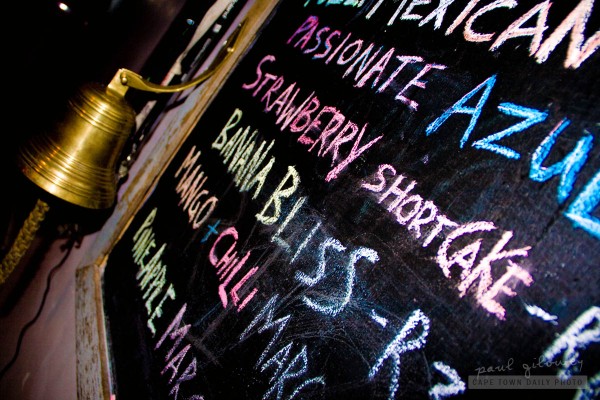 MEXICAN
PASSIONATE AZUL
STRAWBERRY SHORTCAKE - R
BANANA BLISS - R
MANGO + CHILLI MAR
PINEAPPLE MAR
CAPE TOWN DAILY PHOTO